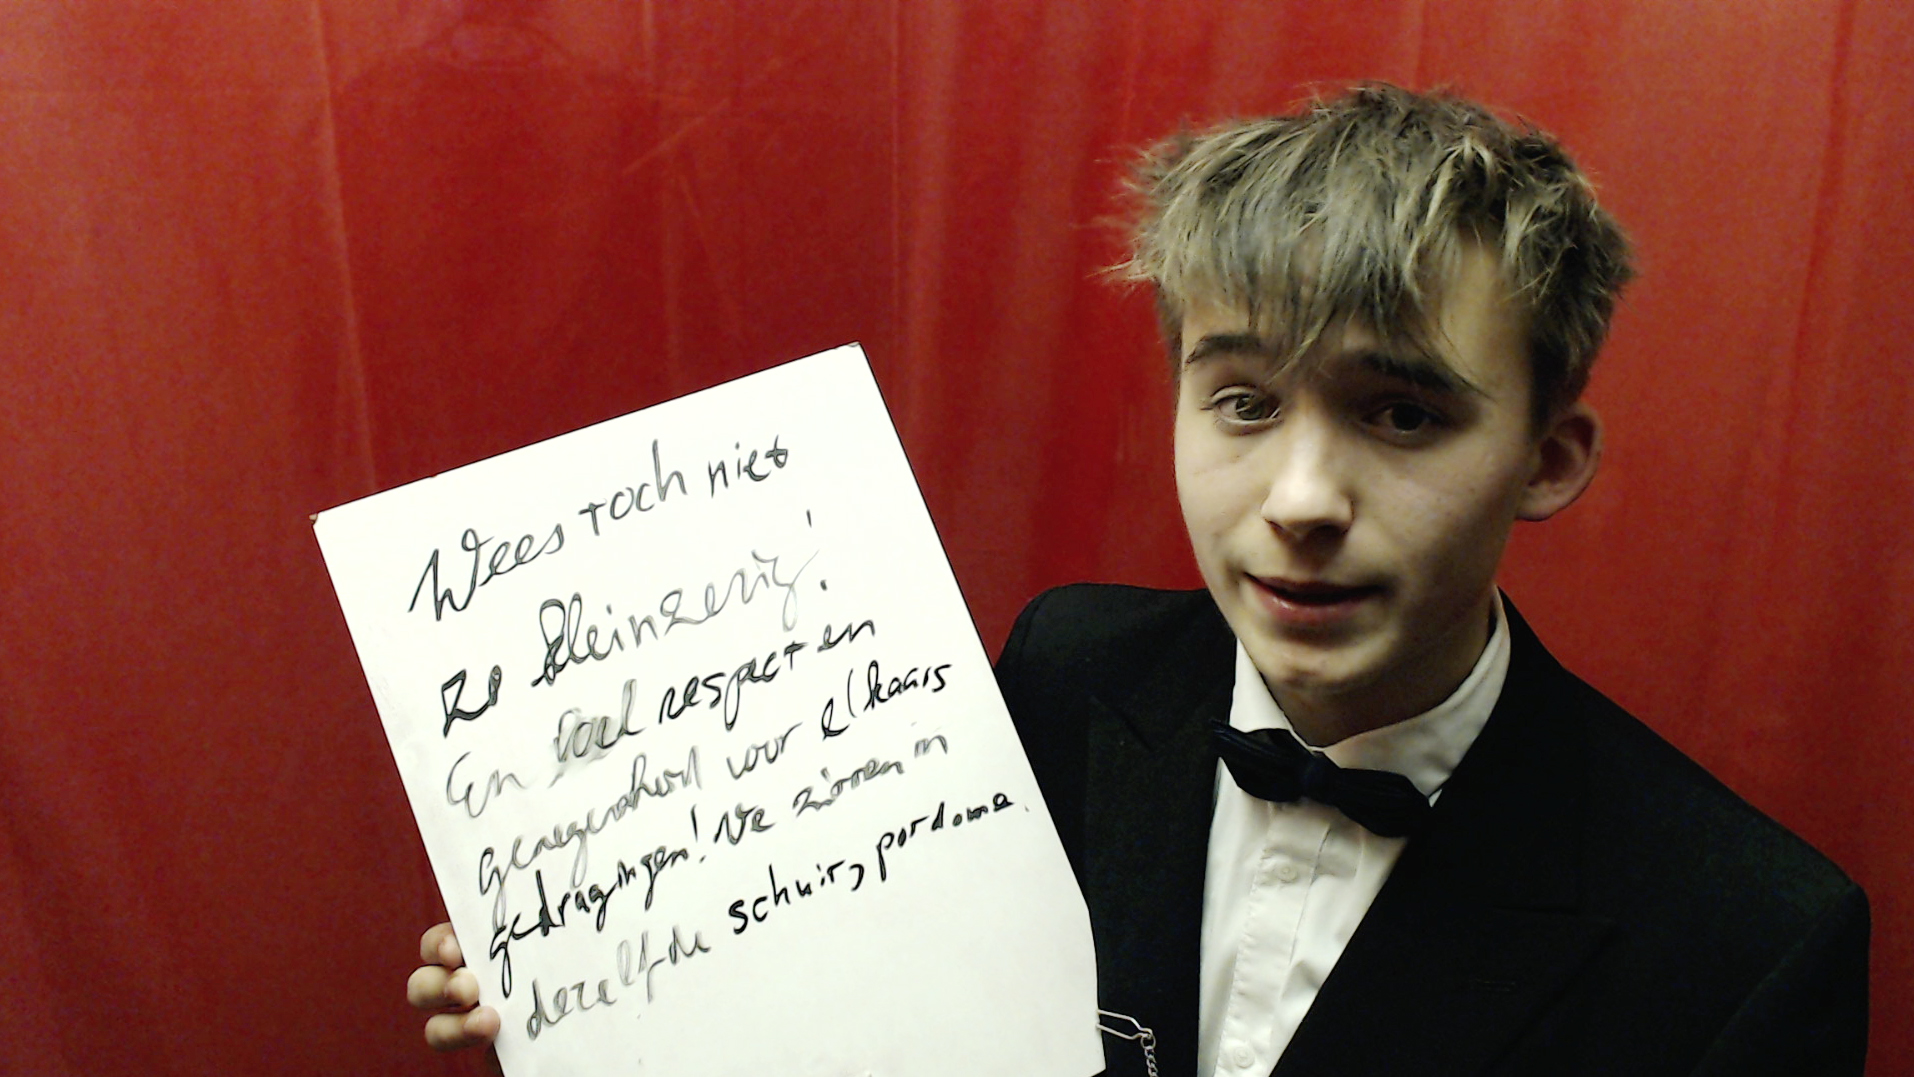 Wees toch niet
zo kleinzerig!
En voel respect en
genegenheid voor elkaars
gedragingen! We zitten in
dezelfde schuit, pardoma.